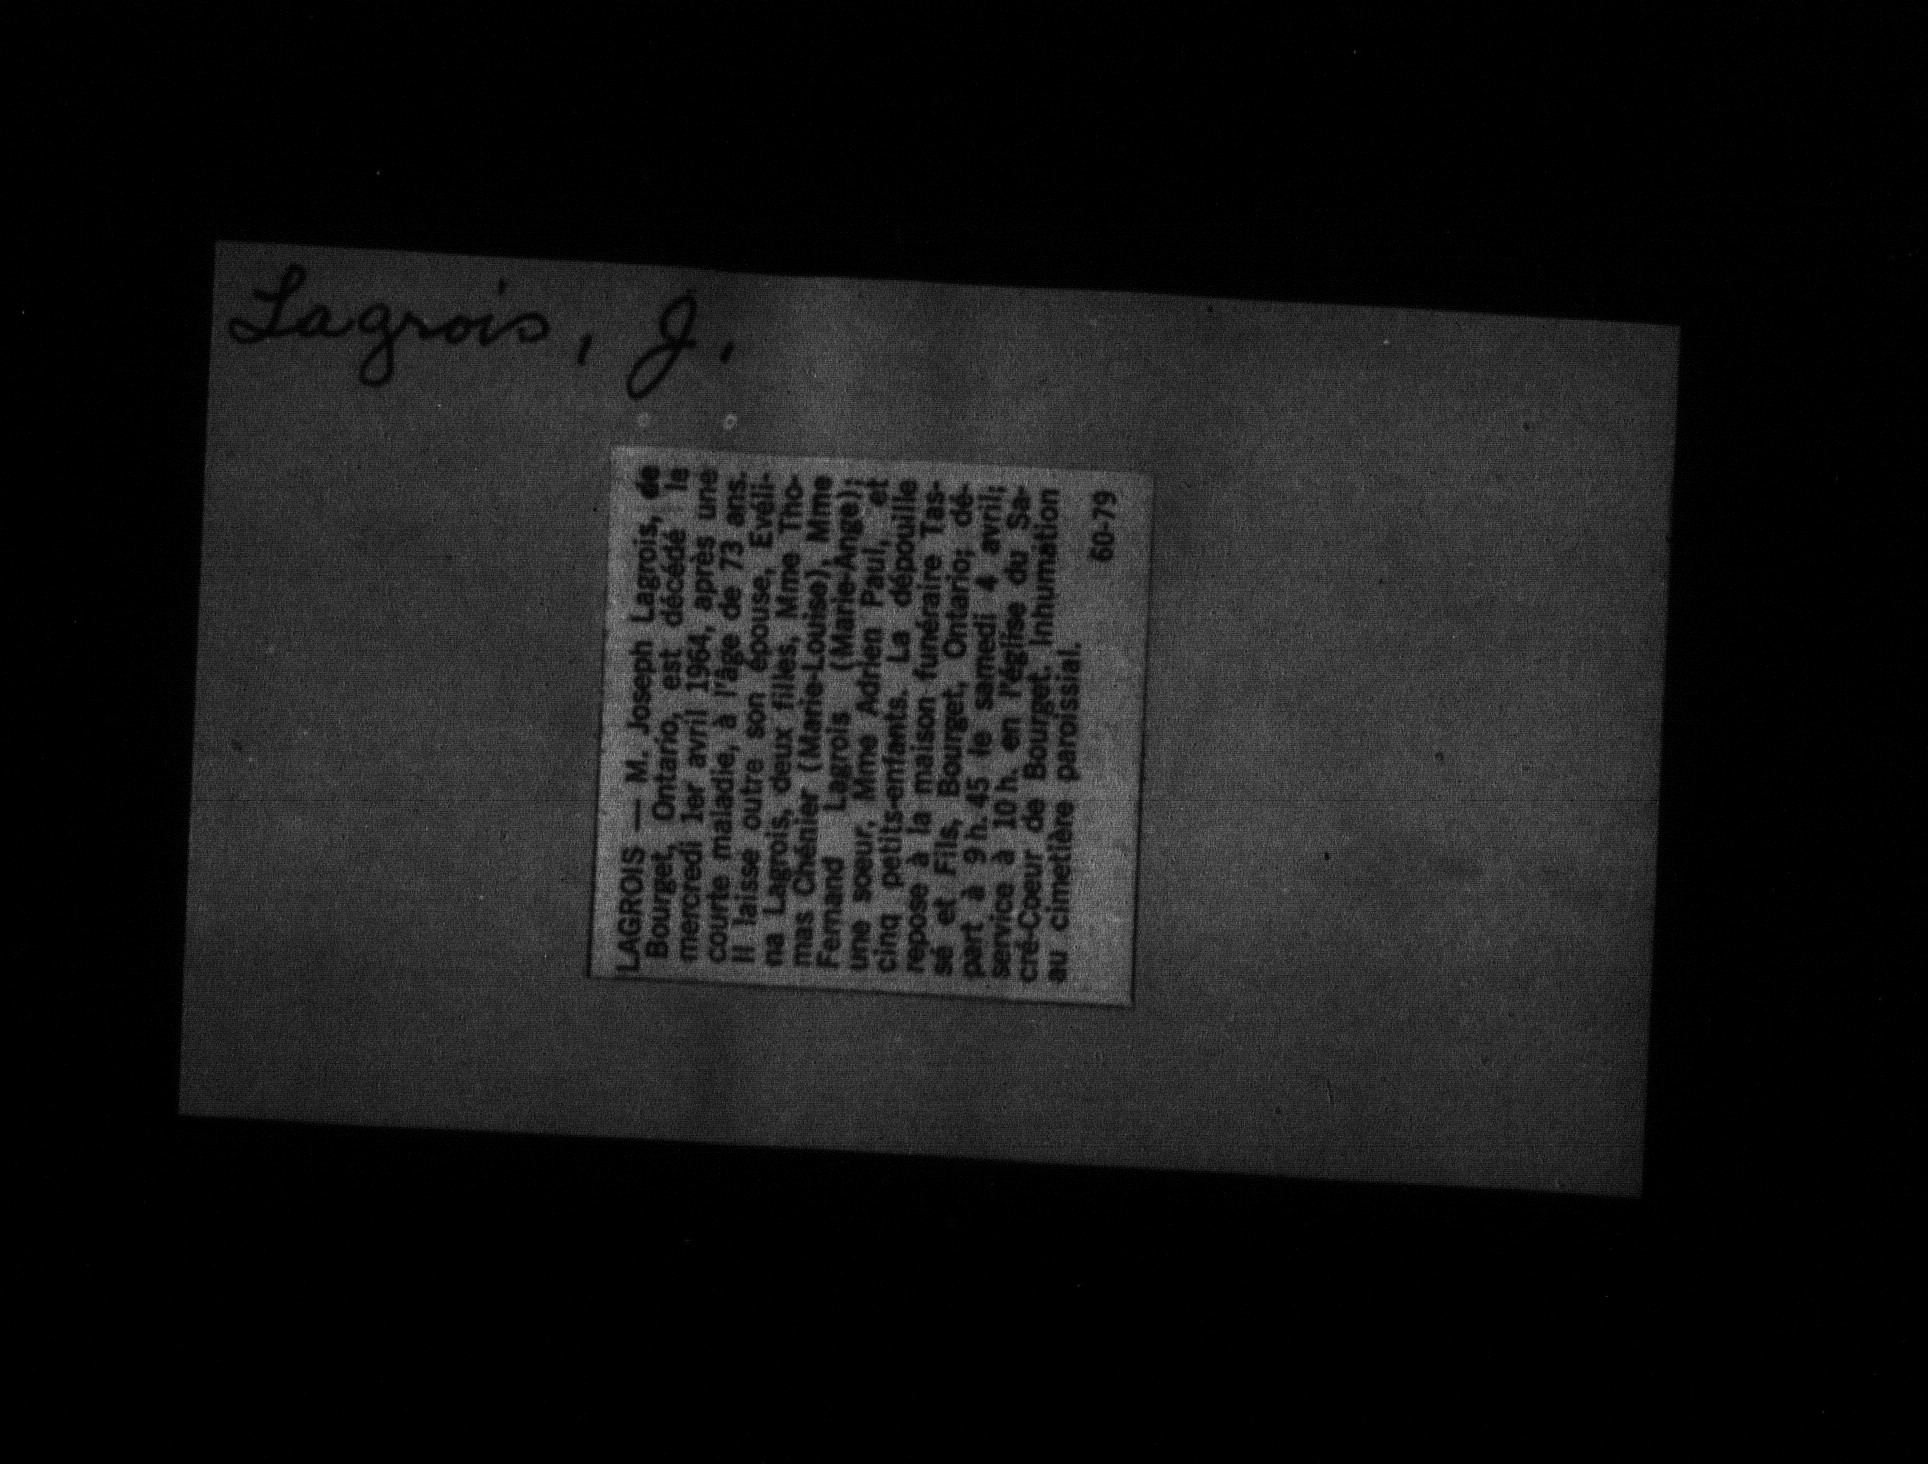 Lagrois, J.
LAGROIS — M. Joseph Lagrois, de
Bourget, Ontario, est décédé le
mercredi 1er avril 1964, après une
courte maladie, à l'âge de 73 ans.
Il laisse outre son épouse, Evéli-
na Lagrois, deux filles, Mme Tho-
mas Chénier (Marie-Louise), Mme
Fernand Lagrois (Marie-Ange);
une soeur, Mme Adrien Paul, et
cinq petits-enfants. La dépouille
repose à la maison funéraire Tas-
sé et Fils, Bourget, Ontario; dé-
part à 9 h. 45 le samedi 4 avril;
service à 10 h. en l'église du Sa-
cré-Coeur de Bourget. Inhumation
au cimetière paroissial.
60-79